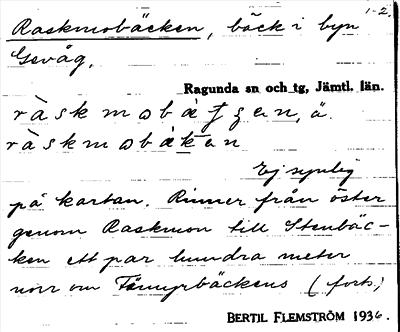 1-2.
Raskmobäcken, bäck i byn
Gevåg.
Ragunda sn och tg, Jämtl. län.
Ej synlig
på kartan. Rinner från öster
genom Raskmon till Stenbäc-
ken ett par hundra meter
norr om (forts.)
BERTIL FLEMSTRÖM 1936.